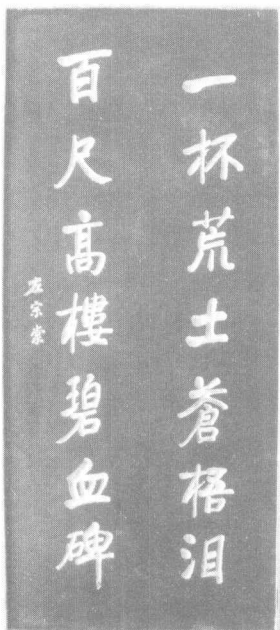 一杯荒土蒼梧泪
百尺高樓碧血碑
左宗棠